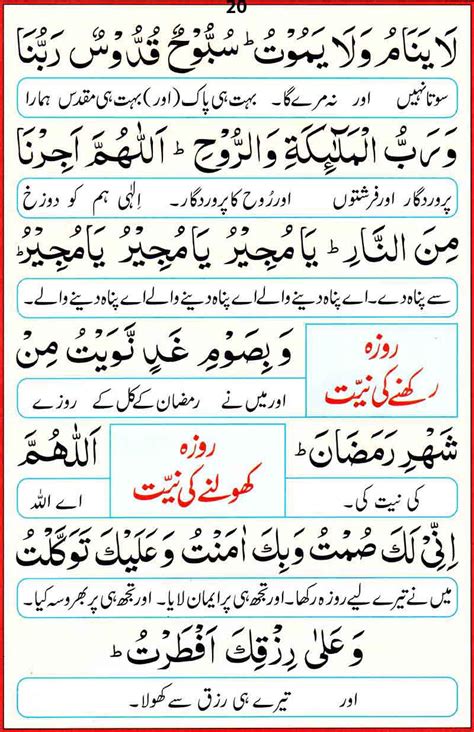 20
لَا يَنَامُ وَلَا يَمُوْتُ ط سُبُّوْحٌ قُدُّوْسٌ رَبُّنَا
سوتا نہیں اور نہ مرے گا۔ بہت ہی پاک (اور) بہت ہی مقدس ہمارا
وَرَبُّ الْمَلٰٓئِكَةِ وَالرُّوْحِ ط اَللّٰهُمَّ اَجِرْنَا
پروردگار اور فرشتوں اور رُوح کا پروردگار۔ الٰہی ہم کو دوزخ
مِنَ النَّارِ ط يَا مُجِيْرُ يَا مُجِيْرُ يَا مُجِيْرُ ط
سے پناہ دے۔ اے پناہ دینے والے اے پناہ دینے والے اے پناہ دینے والے۔
روزہ
رکھنے کی نیّت
وَ بِصَوْمِ غَدٍ نَّوَيْتُ مِنْ
اور میں نے رمضان کے کل کے روزے
شَهْرِ رَمَضَانَ ط
کی نیت کی۔
روزہ
کھولنے کی نیّت
اَللّٰهُمَّ
اے اللہ
اِنِّیْ لَكَ صُمْتُ وَبِكَ اٰمَنْتُ وَعَلَيْكَ تَوَكَّلْتُ
میں نے تیرے لیے روزہ رکھا۔ اور تجھ ہی پر ایمان لایا۔ اور تجھ ہی پر بھروسہ کیا۔
وَ عَلٰى رِزْقِكَ اَفْطَرْتُ ط
اور تیرے ہی رزق سے کھولا۔